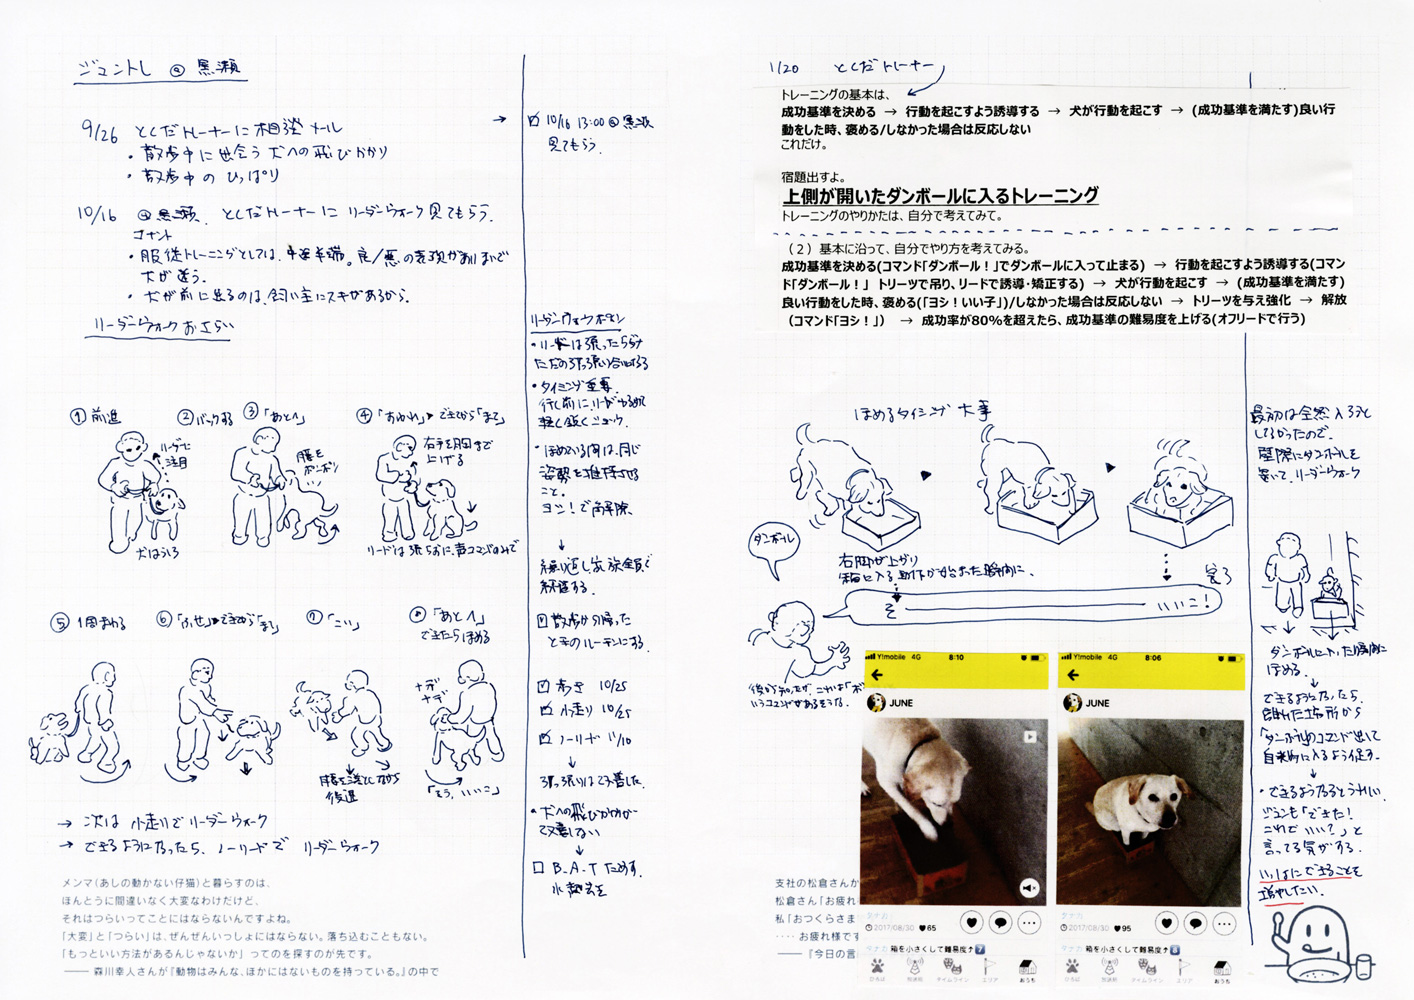 ジュントレ @ 黒瀬
9/26 としだトレーナーに相談メール
・散歩中に出会う犬への飛びかかり
・散歩中のひっぱり
10/16 @黒瀬、としだトレーナーにリーダーウォーク見てもらう。
コメント
・服従トレーニングとしては、中途半端。良/悪の表現があいまいで
犬が迷う。
・犬が前に出るのは、飼い主にスキがあるから。
リーダーウォークおさらい
① 前進
② バックする
③「あとへ」
④「おすわれ」▶できてから「まて」
リーダーに
注目
腰を
ポンポン
右手を胸まで
上げる
犬はうしろ
リードは張らずに、声コマンドのみで
⑤ 1周まわる
⑥「ふせ」▶できてから「まて」
⑦「こい」
⑧「あとへ」
できたらほめる
ナデ
ナデ
腰を落としながら
後退
「そう、いいこ」
→ 次は 小走りでリーダーウォーク
→ できるようになったら、ノーリードで リーダーウォーク
メンマ(あしの動かない仔猫)と暮らすのは、
ほんとうに間違いなく大変なわけだけど、
それはつらいってことにはならないんですよね。
「大変」と「つらい」は、ぜんぜんいっしょにはならない。落ち込むこともない。
「もっといい方法があるんじゃないか」 ってのを探すのが先です。
—— 森川幸人さんが『動物はみんな、ほかにはないものを持っている。』の中で
→ ☑ 10/16 13:00 @黒瀬
見てもらう。
・リードは張ったらダメ
ただの引っ張り合いになる
・タイミング重要
軽く鋭くショック
・ほめている間は、同じ
姿勢を維持させる
こと。
ヨシ!で解除。
↓
繰り返し家族全員で
練習する。
☑ 散歩から帰った
ときのルーチンにする
☑ 歩き 10/25
☑ 小走り 10/25
☑ ノーリード 11/10
↓
引っ張りは改善した。
・犬への飛びかかりが
改善しない
↓
☐ B.A.T ためす。
1/20 としだトレーナー
トレーニングの基本は、
成功基準を決める → 行動を起こすよう誘導する → 犬が行動を起こす → (成功基準を満たす)良い行
動をした時、褒める/しなかった場合は反応しない
これだけ。
宿題出すよ。
上側が開いたダンボールに入るトレーニング
トレーニングのやりかたは、自分で考えてみて。
(2) 基本に沿って、自分でやり方を考えてみる。
成功基準を決める(コマンド「ダンボール!」でダンボールに入って止まる) → 行動を起こすよう誘導する(コマン
ド「ダンボール!」 トリーツで吊り、リードで誘導・矯正する) → 犬が行動を起こす → (成功基準を満たす)
良い行動をした時、褒める(「ヨシ!いい子」)/しなかった場合は反応しない → トリーツを与え強化 → 解放
(コマンド「ヨシ!」) → 成功率が80%を超えたら、成功基準の難易度を上げる(オフリードで行う)
ほめるタイミング 大事
ダンボール
右脚が上がり
箱に入る動作が始まった瞬間に、
完了
そ ―――― いいこ!
最初は全然入ろうと
しなかったので、
壁際にダンボールを
置いてリーダーウォーク
ダンボールに入った瞬間に
ほめる
↓
できるようになったら、
離れた場所から
「ダンボール」のコマンド出して
自発的に入るよう促す。
↓
・できるようになるとうれしい。
ジュンも「できた!
これでいい?」と
言ってる気がする。
いっぱいできることを
増やしたい。
Y!mobile 4G 8:10
JUNE
タナカ
2017/08/30 ♥65
タナカ 箱を小さくして難易度↗7
ひろば 放送局 タイムライン エリア おうち
Y!mobile 4G 8:06
JUNE
タナカ
2017/08/30 ♥95
タナカ 箱を小さくして難易度↗6
ひろば 放送局 タイムライン エリア おうち
支社の松倉さんか
松倉さん「お疲れ
私「おつくらさま
‥‥ お疲れ様です
——『今日の言